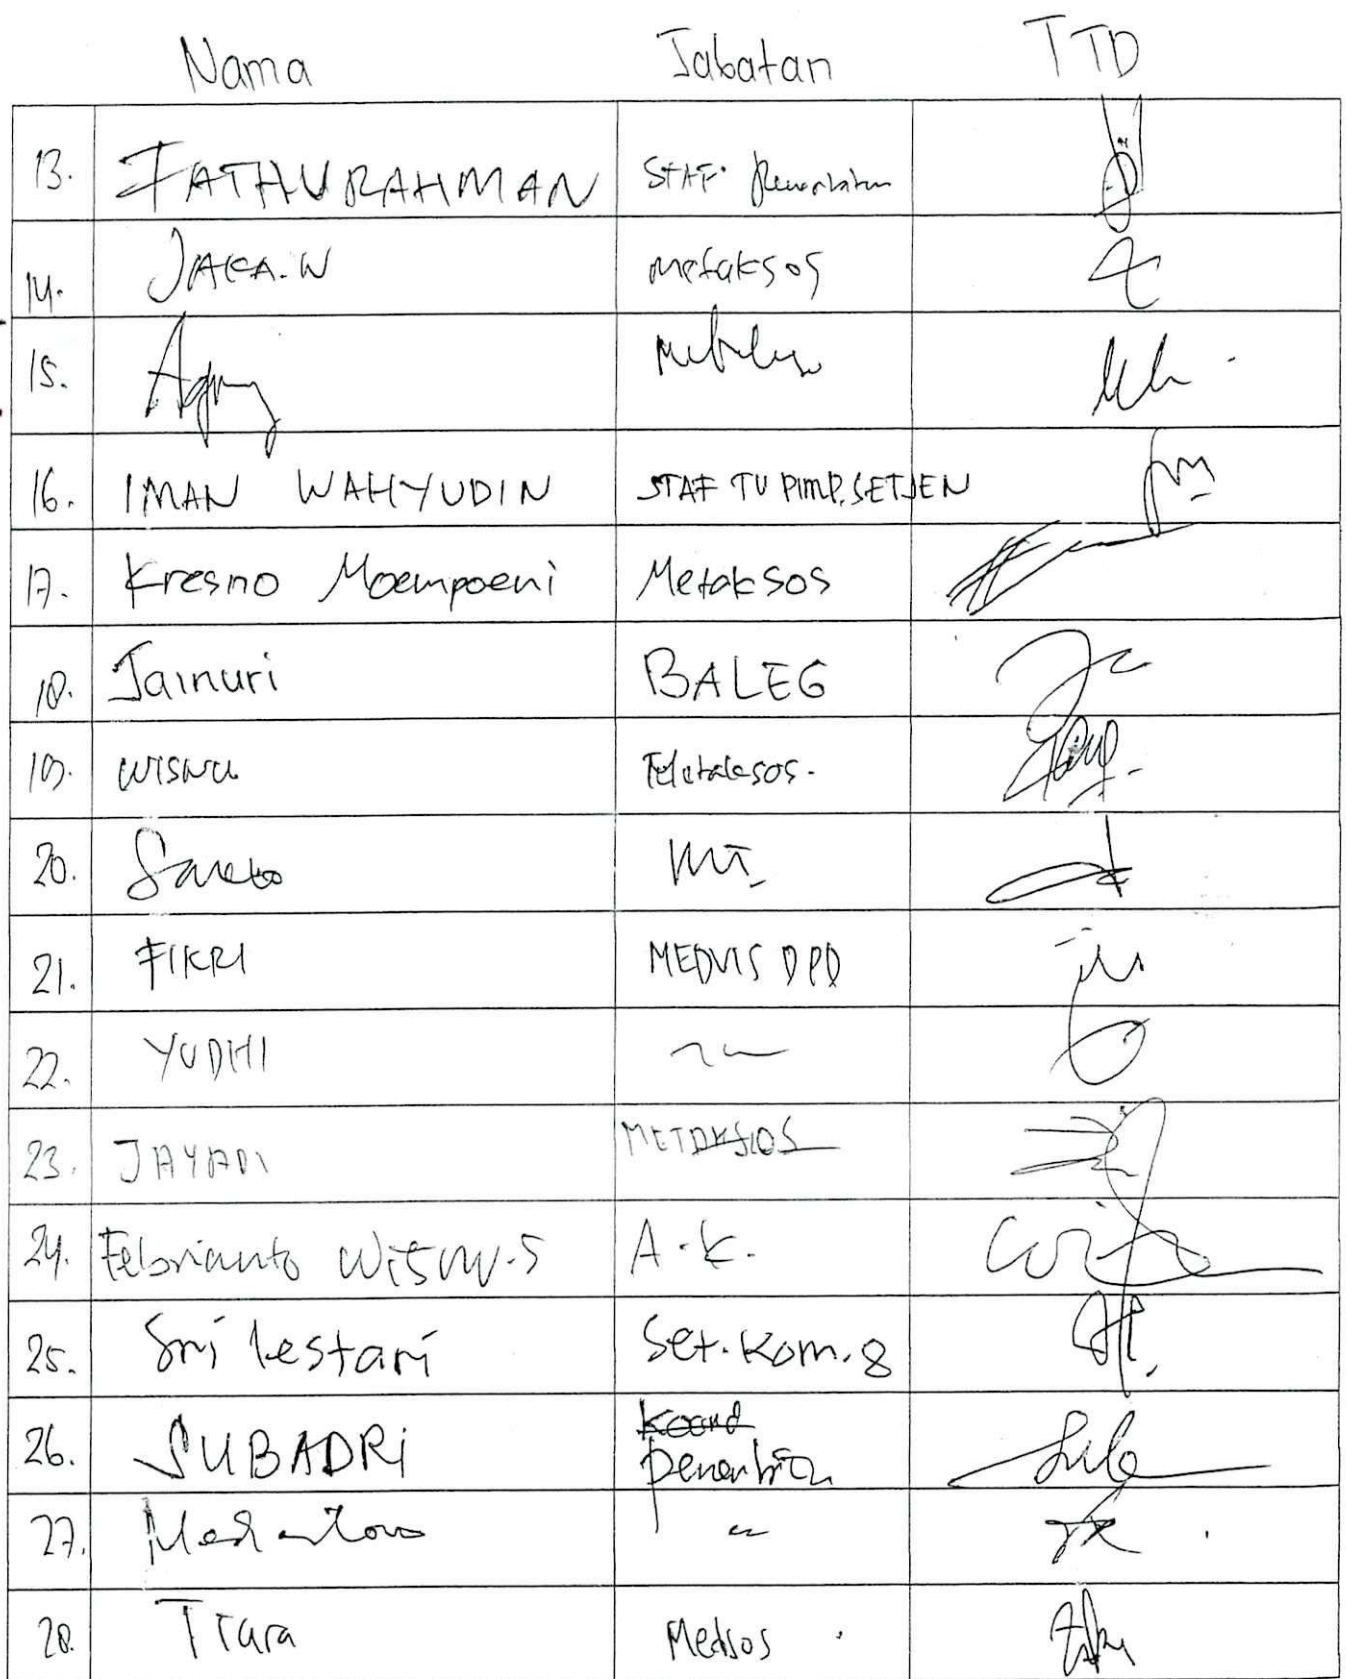 Nama Jabatan TTD
13. FATHURAHMAN STAF Penerbitan
14. JAKA.W Metaksos
15. Agung
16. IMAN WAHYUDIN STAF TU PIMP. SETJEN
17. Kresno Moempoeni Metaksos
18. Jainuri BALEG
19. WISNU Metaksos.
20.
21. FIKRI MEDVIS DPD
22. YUDHI
23. JAYADI METAKSOS
24. Febrianto Wisnu.S A.K.
25. Sri lestari Set.Kom.8
26. SUBADRI Koord
penerbitan
27.
28. Tiara Medsos